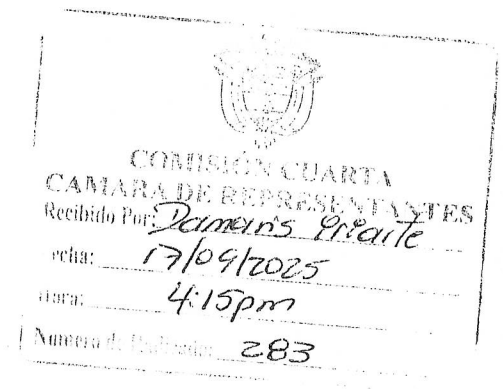 COMISIÓN CUARTA
CAMARA DE REPRESENTANTES
Recibido Por: Damaris Iriarte
echa: 17/09/2025
ora: 4:15pm
Numero de Radicado: 283